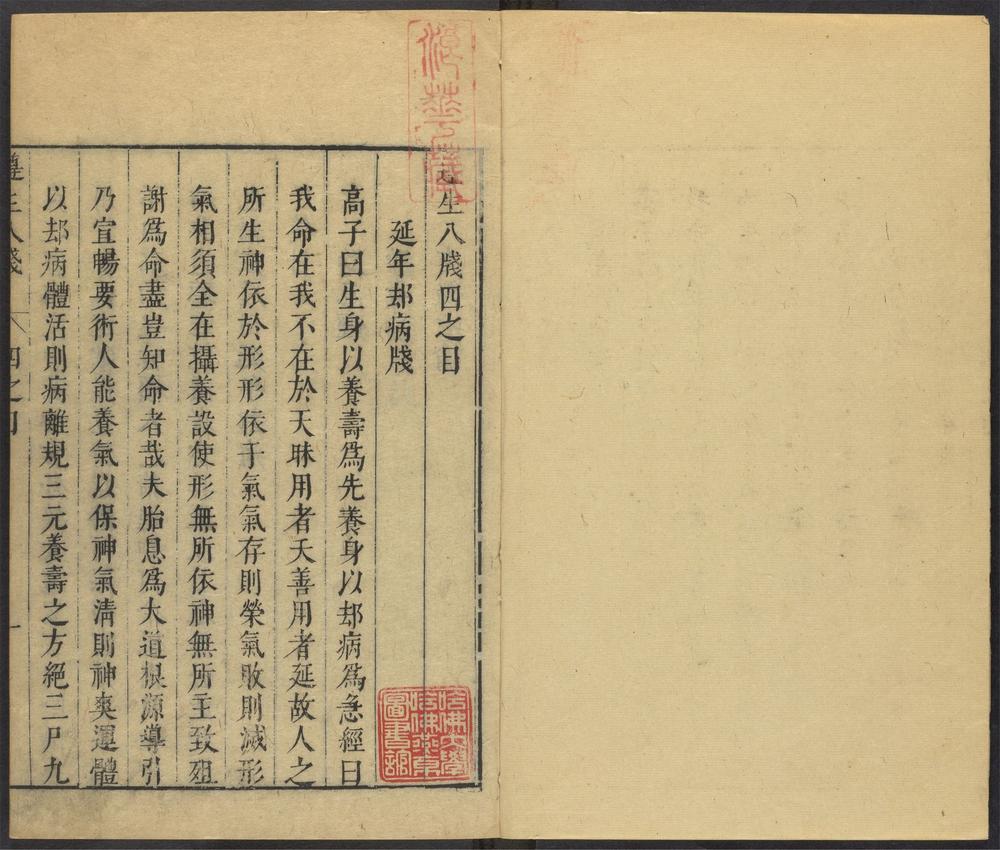 遵生八牋四之目
延年却病牋
高子曰生身以養壽爲先養身以却病爲急經曰
我命在我不在於天昧用者夭善用者延故人之
所生神依於形形依于氣氣存則榮氣敗則滅形
氣相須全在攝養設使形無所依神無所主致殂
謝爲命盡豈知命者哉夫胎息爲大道根源導引
乃宣暢要術人能養氣以保神氣清則神爽運體
以却病體活則病離規三元養壽之方絶三尸九
遵生八牋
四之目
一
哈佛大學
哈佛燕京
圖書館